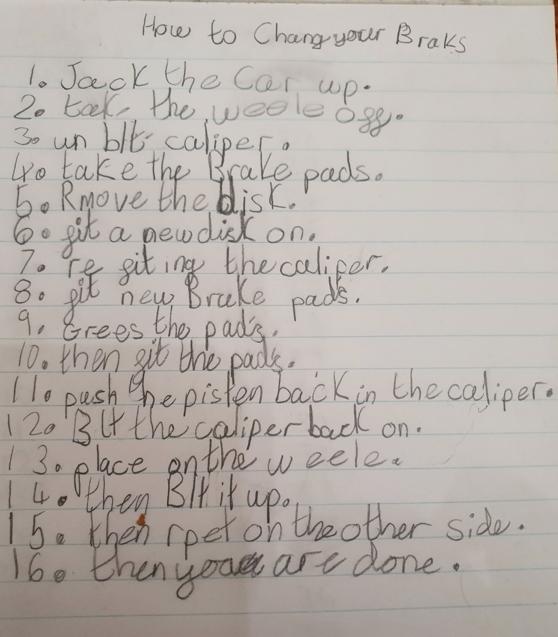 How to Chang your Braks
1. Jack the Car up.
2. tack the weele ogg.
3. un blt caliper.
4. take the Brake pads.
5. Rmove the disk.
6. git a new disk on.
7. re giting the caliper.
8. git new Brake pads.
9. Grees the pads.
10. then git the pads.
11. push the pisten back in the caliper.
12. Blt the caliper back on.
13. place on the weele.
14. then Blt it up.
15. then rpet on the other side.
16. then you are done.